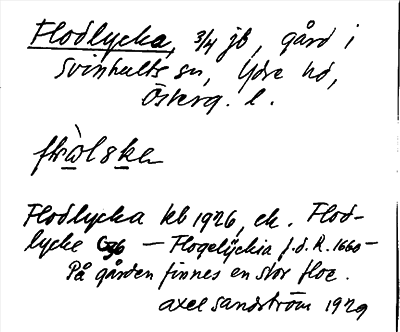 Flodlycka, 3/4 jb, gård i
Svinhults sn, Ydre hd,
Österg. l.
Flodlycka kb 1926, ek. Flod-
lycke Cgb — Flogelÿckia f.d. R. 1660 —
På gården finnes en stor floe.
Axel Sandström 1929